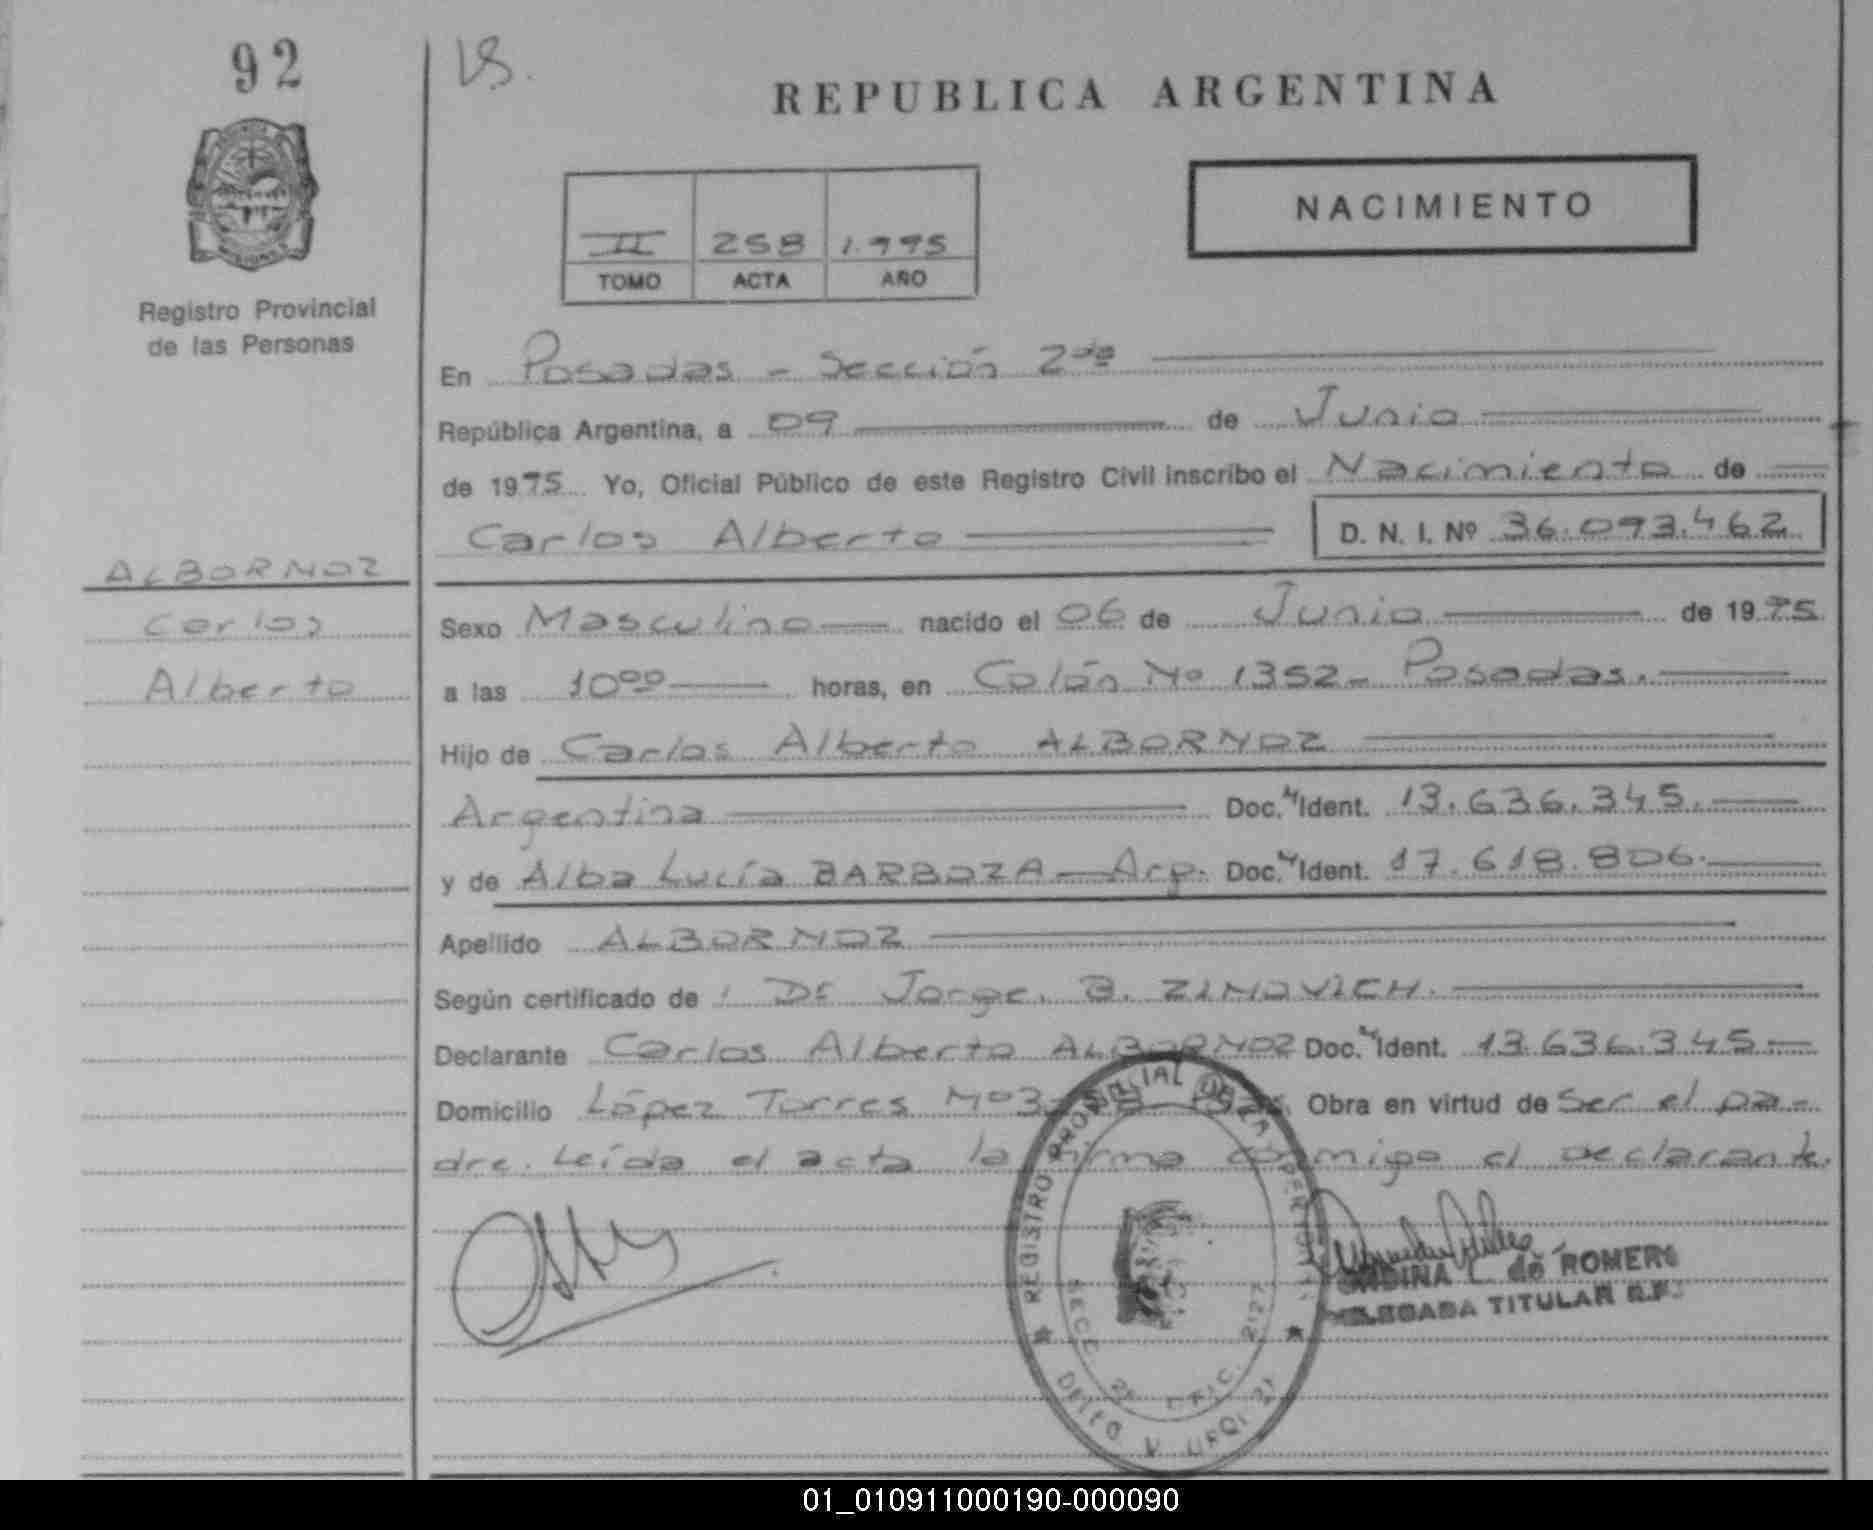 92
VS.
REPUBLICA ARGENTINA
NACIMIENTO
II 258 1.995
TOMO ACTA AÑO
Registro Provincial
de las Personas
En Posadas - Sección 2da
República Argentina, a 09 de Junio
de 1975 Yo, Oficial Público de este Registro Civil inscribo el Nacimiento de
Carlos Alberto D. N. I. Nº 36.093.462
ALBORNOZ
Carlos
Alberto
Sexo Masculino nacido el 06 de Junio de 1975
a las 1000 horas, en Colón Nº 1352 - Posadas.
Hijo de Carlos Alberto ALBORNOZ
Argentina Doc. Ident. 13.636.345.
y de Alba Lucía BARBOZA - Arg. Doc. Ident. 17.618.806.
Apellido ALBORNOZ
Según certificado de : Dr Jorge. B. ZIMOVICH.
Declarante Carlos Alberto ALBORNOZ Doc. Ident. 13.636.345.-
Domicilio López Torres Nº3 Obra en virtud de Ser el pa-
dre. Leída el acta la firma conmigo el declarante.
REGISTRO PROVINCIAL DE LAS PERSONAS
SECC 2ª OFIC. 2127
L. de ROMERO
DELEGADA TITULAR R.P.
01_010911000190-000090